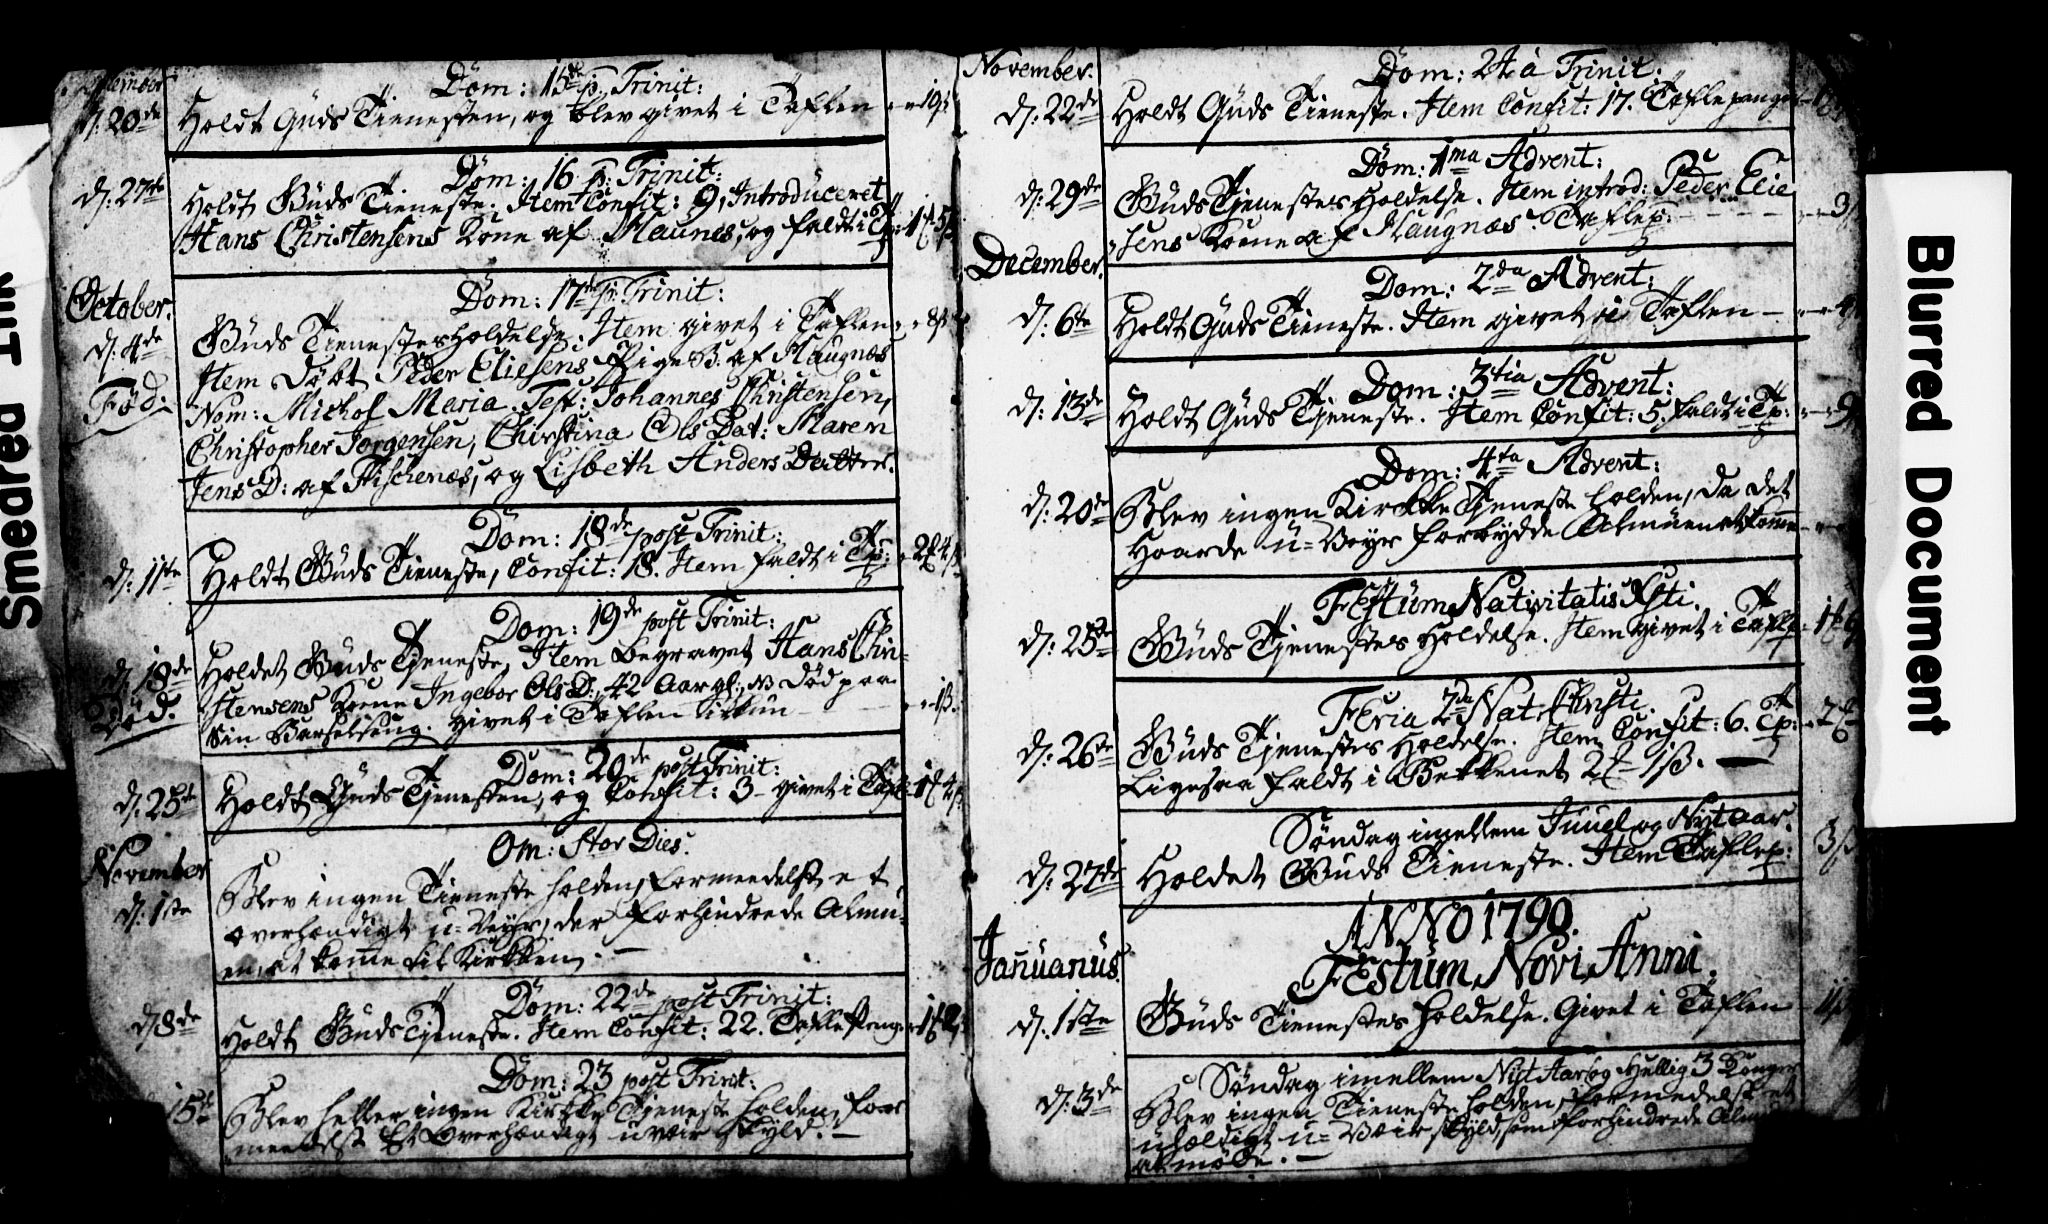 Smeared Ink
d: 20de
Dom: 15de p. Trinit:
Holdt Guds Tienesten, og blev givet i Taflen
d: 27de
Dom: 16 p: Trinit:
Holdt Guds Tieneste. Item Confit: 9, Introduceret
Hans Christensens Kone af Maunes, og faldt i Tp:
October.
d: 4de
Fød:
Dom: 17de p: Trinit:
Guds Tienestes holdelse. Item givet i Taflen
Item døbt Peder Eliesens Pige B: af Haugnæs
Nom: Michol Maria. Test: Johannes Christensen,
Christopher Jorgensen, Christina Ols Dat: Maren
Jens D: af Fischenæs, og Lisbeth Anders Datter.
d: 11te
Dom: 18de post Trinit:
Holdt Guds Tieneste, Confit: 18. Item faldt i Tp:
d: 18de
Død.
Dom: 19de post Trinit:
Holdet Guds Tjeneste, Item begravet Hans Chri-
stensens Kone Ingebor Ols D:, 42 Aar gl:, død paa
sin Barselseng. givet i Taflen
d: 25de
Dom: 20de post Trinit:
Holdt Guds Tjenesten, og Confit: 3 - givet i Tafl:
November
d: 1ste
Om: Stor Dies.
Blev ingen Tieneste holden, formedelst et
overhændigt u-Veyr, der forhindrede Almu-
en, at komme til Kirkken. -
d 8de
Dom: 22de post Trinit:
Holdt Guds Tjeneste. Item Confit: 22. Tafle Penge
15de
Dom: 23 post Trinit:
Blev heller ingen Kirkke Tjeneste holden, for-
meedelst Et Overhændigt uveir skyld. -
November.
d: 22de
Dom: 24 à Trinit:
Holdt Guds Tieneste. Item Confit: 17. Taflepenge
d: 29de
Dom: 1ma Advent:
Guds Tjenestes Holdelse. Item introd: Peder Elie
sens Kone af Haugnæs. Taflep:
December.
d: 6te
Dom: 2da Advent:
Holdt Guds Tieneste. Item givet i Taflen -
d: 13de
Dom: 3tia Advent:
Holdt Guds Tjeneste. Item Confit: 5. faldt i Tp:
d: 20de
Dom: 4ta Advent:
Blev ingen Kirkke Tjeneste holden, da det
Haarde u-Veyr forbydde Almuen at komme
d: 25de
Festum Nativitatis Xsti.
Guds Tjenestes Holdelse. Item givet i Taflp:
d: 26de
Feria 2da Nat: Christi.
Guds Tjenestes Holdelse. Item Confit: 6. Tp:
Ligesaa faldt i Bekkenet
d: 27de
Søndag imellem Juuel og Nytaar.
Holdet Guds Tieneste. Item Taflep:
ANNO 1790.
Januarius
d: 1ste
Festum Novi Anni.
Guds Tienestes holdelse. Givet i Taflen
d: 3de
Søndag imellem Nyt Aar og Hellig 3 Konger
Blev ingen Tieneste holden, formedelst et
u-Veir skyld, som forhindrede
at møde. -
Blurred Document